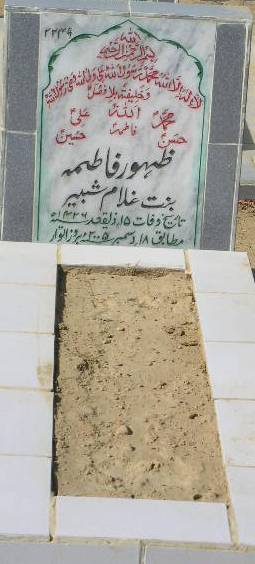 ۲۲۴۹
الله
بسم الله الرحمن الرحیم
لا اله الا الله محمد رسول الله علی ولی الله وصی رسول الله
و خلیفته بلا فصل
محمد الله علی
حسن فاطمه حسین
ظہور فاطمہ
بنت غلام شبیر
تاریخ وفات ۱۵ ذیلقعد ۱۴۲۶ھ
مطابق ۱۸ دسمبر ۲۰۰۵ء بروز اتوار